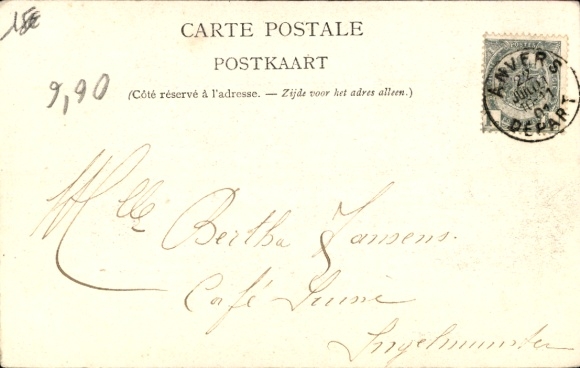 15€
CARTE POSTALE
POSTKAART
9,90
(Côté réservé à l'adresse. — Zijde voor het adres alleen.)
ANVERS
DÉPART
Mlle Bertha Jansens.
Café
Ingelmunster